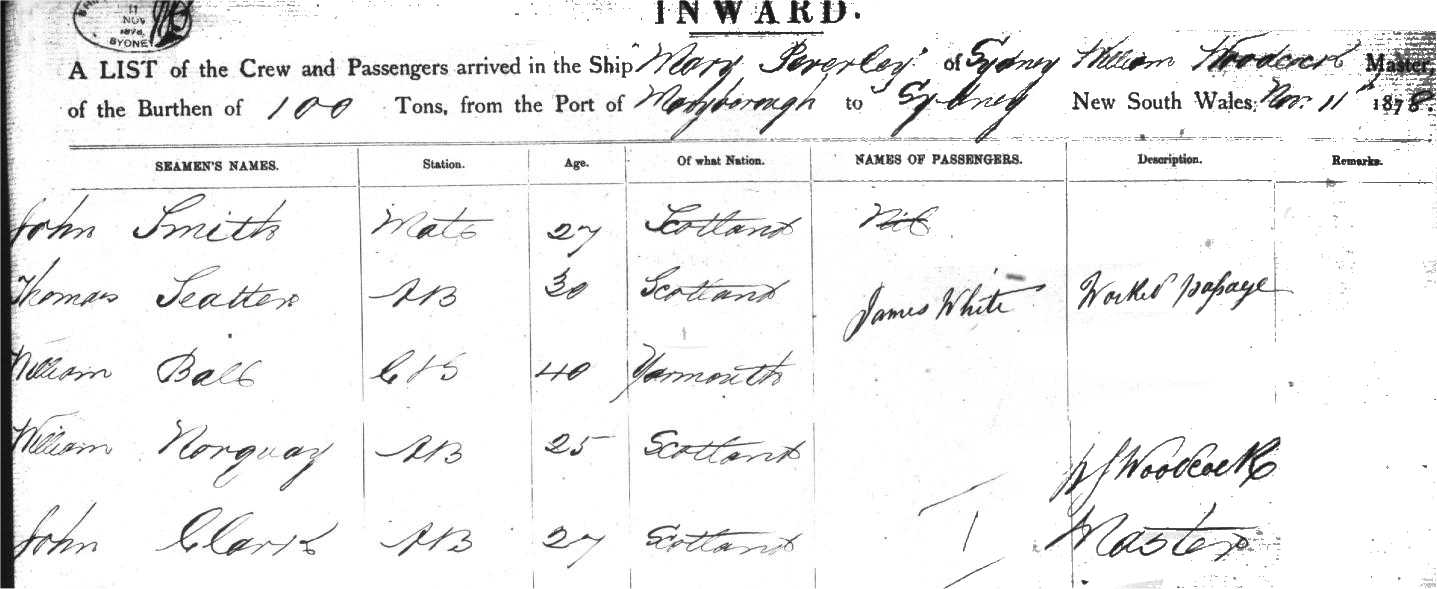 11
NOV
1878
SYDNEY
INWARD.
A LIST of the Crew and Passengers arrived in the Ship "Mary Peverley" of Sydney William Woodcock Master,
of the Burthen of 100 Tons, from the Port of Maryborough to Sydney New South Wales, Nov. 11th 1878.
SEAMEN'S NAMES. Station. Age. Of what Nation. NAMES OF PASSENGERS. Description. Remarks.
John Smith Mate 27 Scotland Nil
Thomas Seatter AB 30 Scotland James White Worked passage
William Ball C&S 40 Yarmouth
William Norquay AB 25 Scotland
WJ Woodcock
John Clark AB 27 Scotland Master